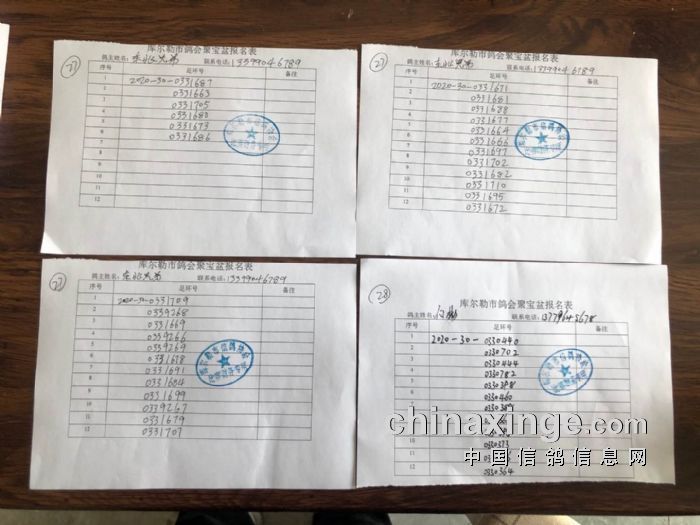 27
库尔勒市鸽会聚宝盆报名表
鸽主姓名: 东北兄弟 联系电话: 13399046789
序号 足环号 备注
1 2020-30-0331687
2 0331663
3 0331705
4 0331680
5 0331673
6 0331686
7
8
9
10
11
12
27
库尔勒市鸽会聚宝盆报名表
鸽主姓名: 东北兄弟 联系电话: 13399046789
序号 足环号 备注
1 2020-30-0331671
2 0331681
3 0331688
4 0331677
5 0331664
6 0331666
7 0331697
8 0331702
9 0331682
10 0331710
11 0331695
12 0331672
27
库尔勒市鸽会聚宝盆报名表
鸽主姓名: 东北兄弟 联系电话: 13399046789
序号 足环号 备注
1 2020-30-0331709
2 0339268
3 0331669
4 0339266
5 0339269
6 0331678
7 0331691
8 0331684
9 0331699
10 0339267
11 0331679
12 0331707
28
库尔勒市鸽会聚宝盆报名表
鸽主姓名: 联系电话:
序号 足环号 备注
1 2020-30-0330440
2 0330702
3 0330444
4 0330782
5 0330398
6 0330460
7 0330389
10 0330373
12 0330364
chinaxinge.com
中国信鸽信息网